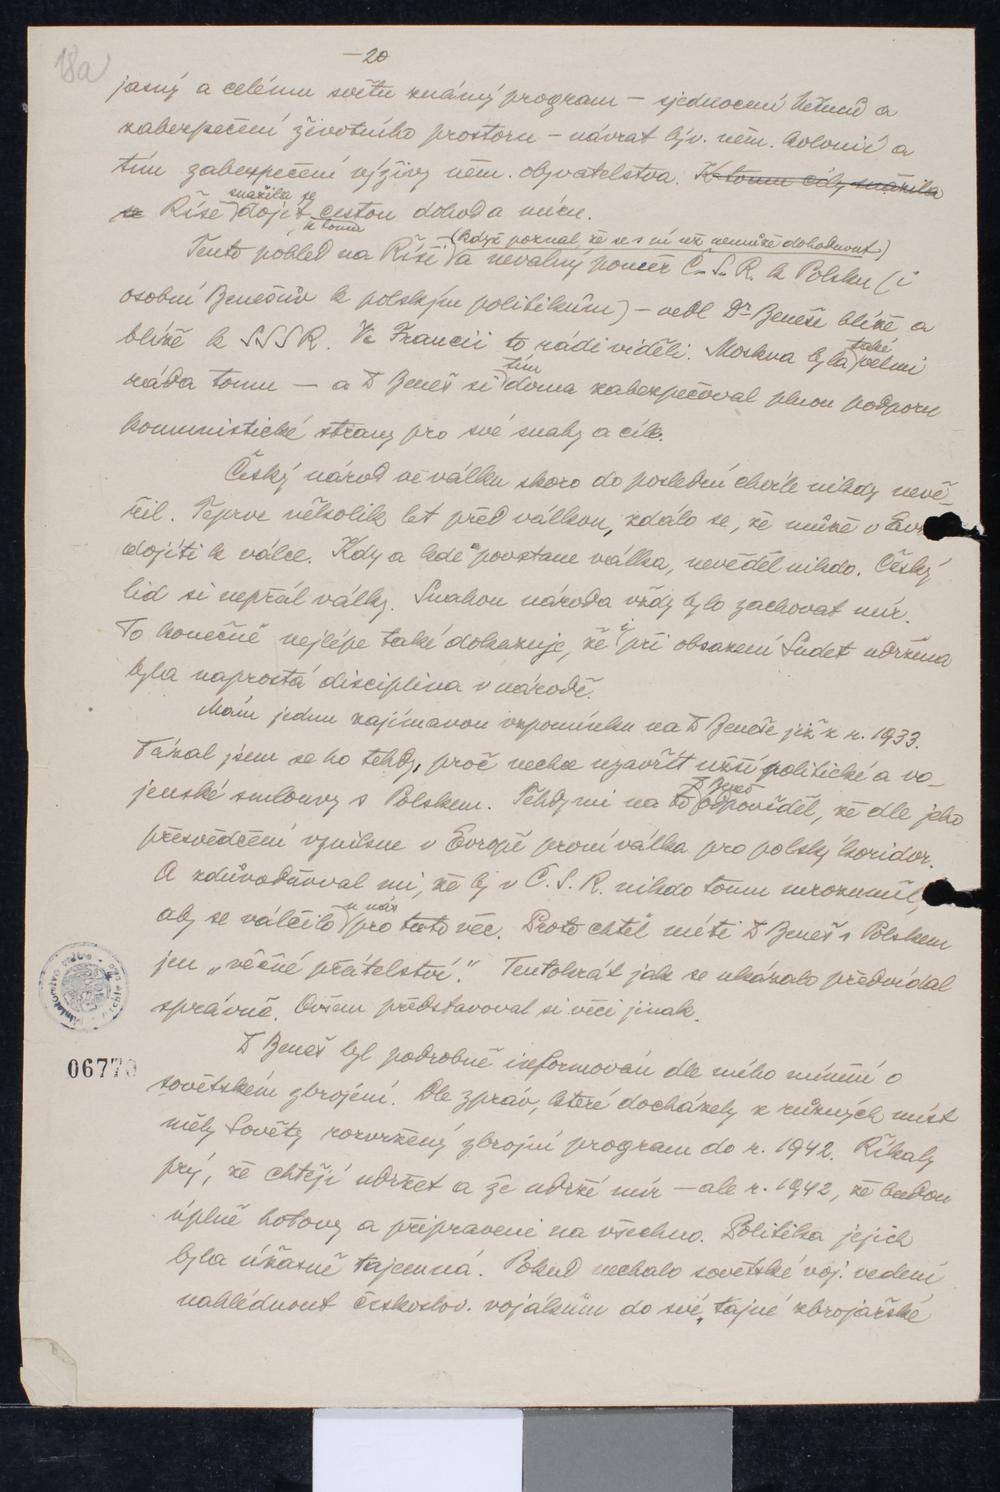 18a
– 20
jasný a celému světu známý program – sjednocení Němců a
zabezpečení životního prostoru – návrat býv. něm. kolonií a
tím zabezpečení výživy něm. obyvatelstva. K tomu cíly snažila
se Říše snažila se k tomu dojít cestou dohod a míru.
(když poznal že se s ní už nemůže dohodnout)
Tento pohled na Říši a nevalný poměr Č.S.R. k Polsku (i
osobní Benešův k polským politikům) – vedl Dr Beneše blíže a
blíže k SSSR. Ve Francii to rádi viděli. Moskva byla také velmi
ráda tomu – a D Beneš si tím doma zabezpečoval plnou podporu
komunistické strany pro své snahy a cíle.
Český národ ve válku skoro do poslední chvíle nikdy nevě-
řil. Teprve několik let před válkou, zdálo se, že může v
dojíti k válce. Kdy a kde povstane válka, nevěděl nikdo. Český
lid si nepřál války. Snahou národa vždy bylo zachovat mír.
To konečně nejlépe také dokazuje, že i při obsazení Sudet udržena
byla naprostá disciplina v národě.
Mám jednu zajímavou vzpomínku na D Beneše již z r. 1933.
Tázal jsem se ho tehdy, proč nechce uzavřít užší politické a vo-
jenské smlouvy s Polskem. Tehdy mi na to D Beneš odpověděl, že dle jeho
přesvědčení vznikne v Evropě první válka pro polský koridor.
A zdůvodňoval mi, že by v Č.S.R. nikdo tomu nerozuměl,
aby se válčilo u nás pro tuto věc. Proto chtěl míti D Beneš s Polskem
jen „věčné přátelství." Tentokrát jak se ukázalo předvídal
správně. Ovšem představoval si věci jinak.
06773
D Beneš byl podrobně informován dle mého mínění o
sovětském zbrojení. Dle zpráv, které docházely z různých míst
měly Sověty rozvržený zbrojní program do r. 1942. Říkaly
prý, že chtějí udržet a že udrží mír – ale r. 1942, že budou
úplně hotovy a připraveni na všechno. Politika jejich
byla úžasně tajemná. Pokud nechalo sovětské voj. vedení
nahlédnout českoslov. vojákům do své tajné zbrojařské